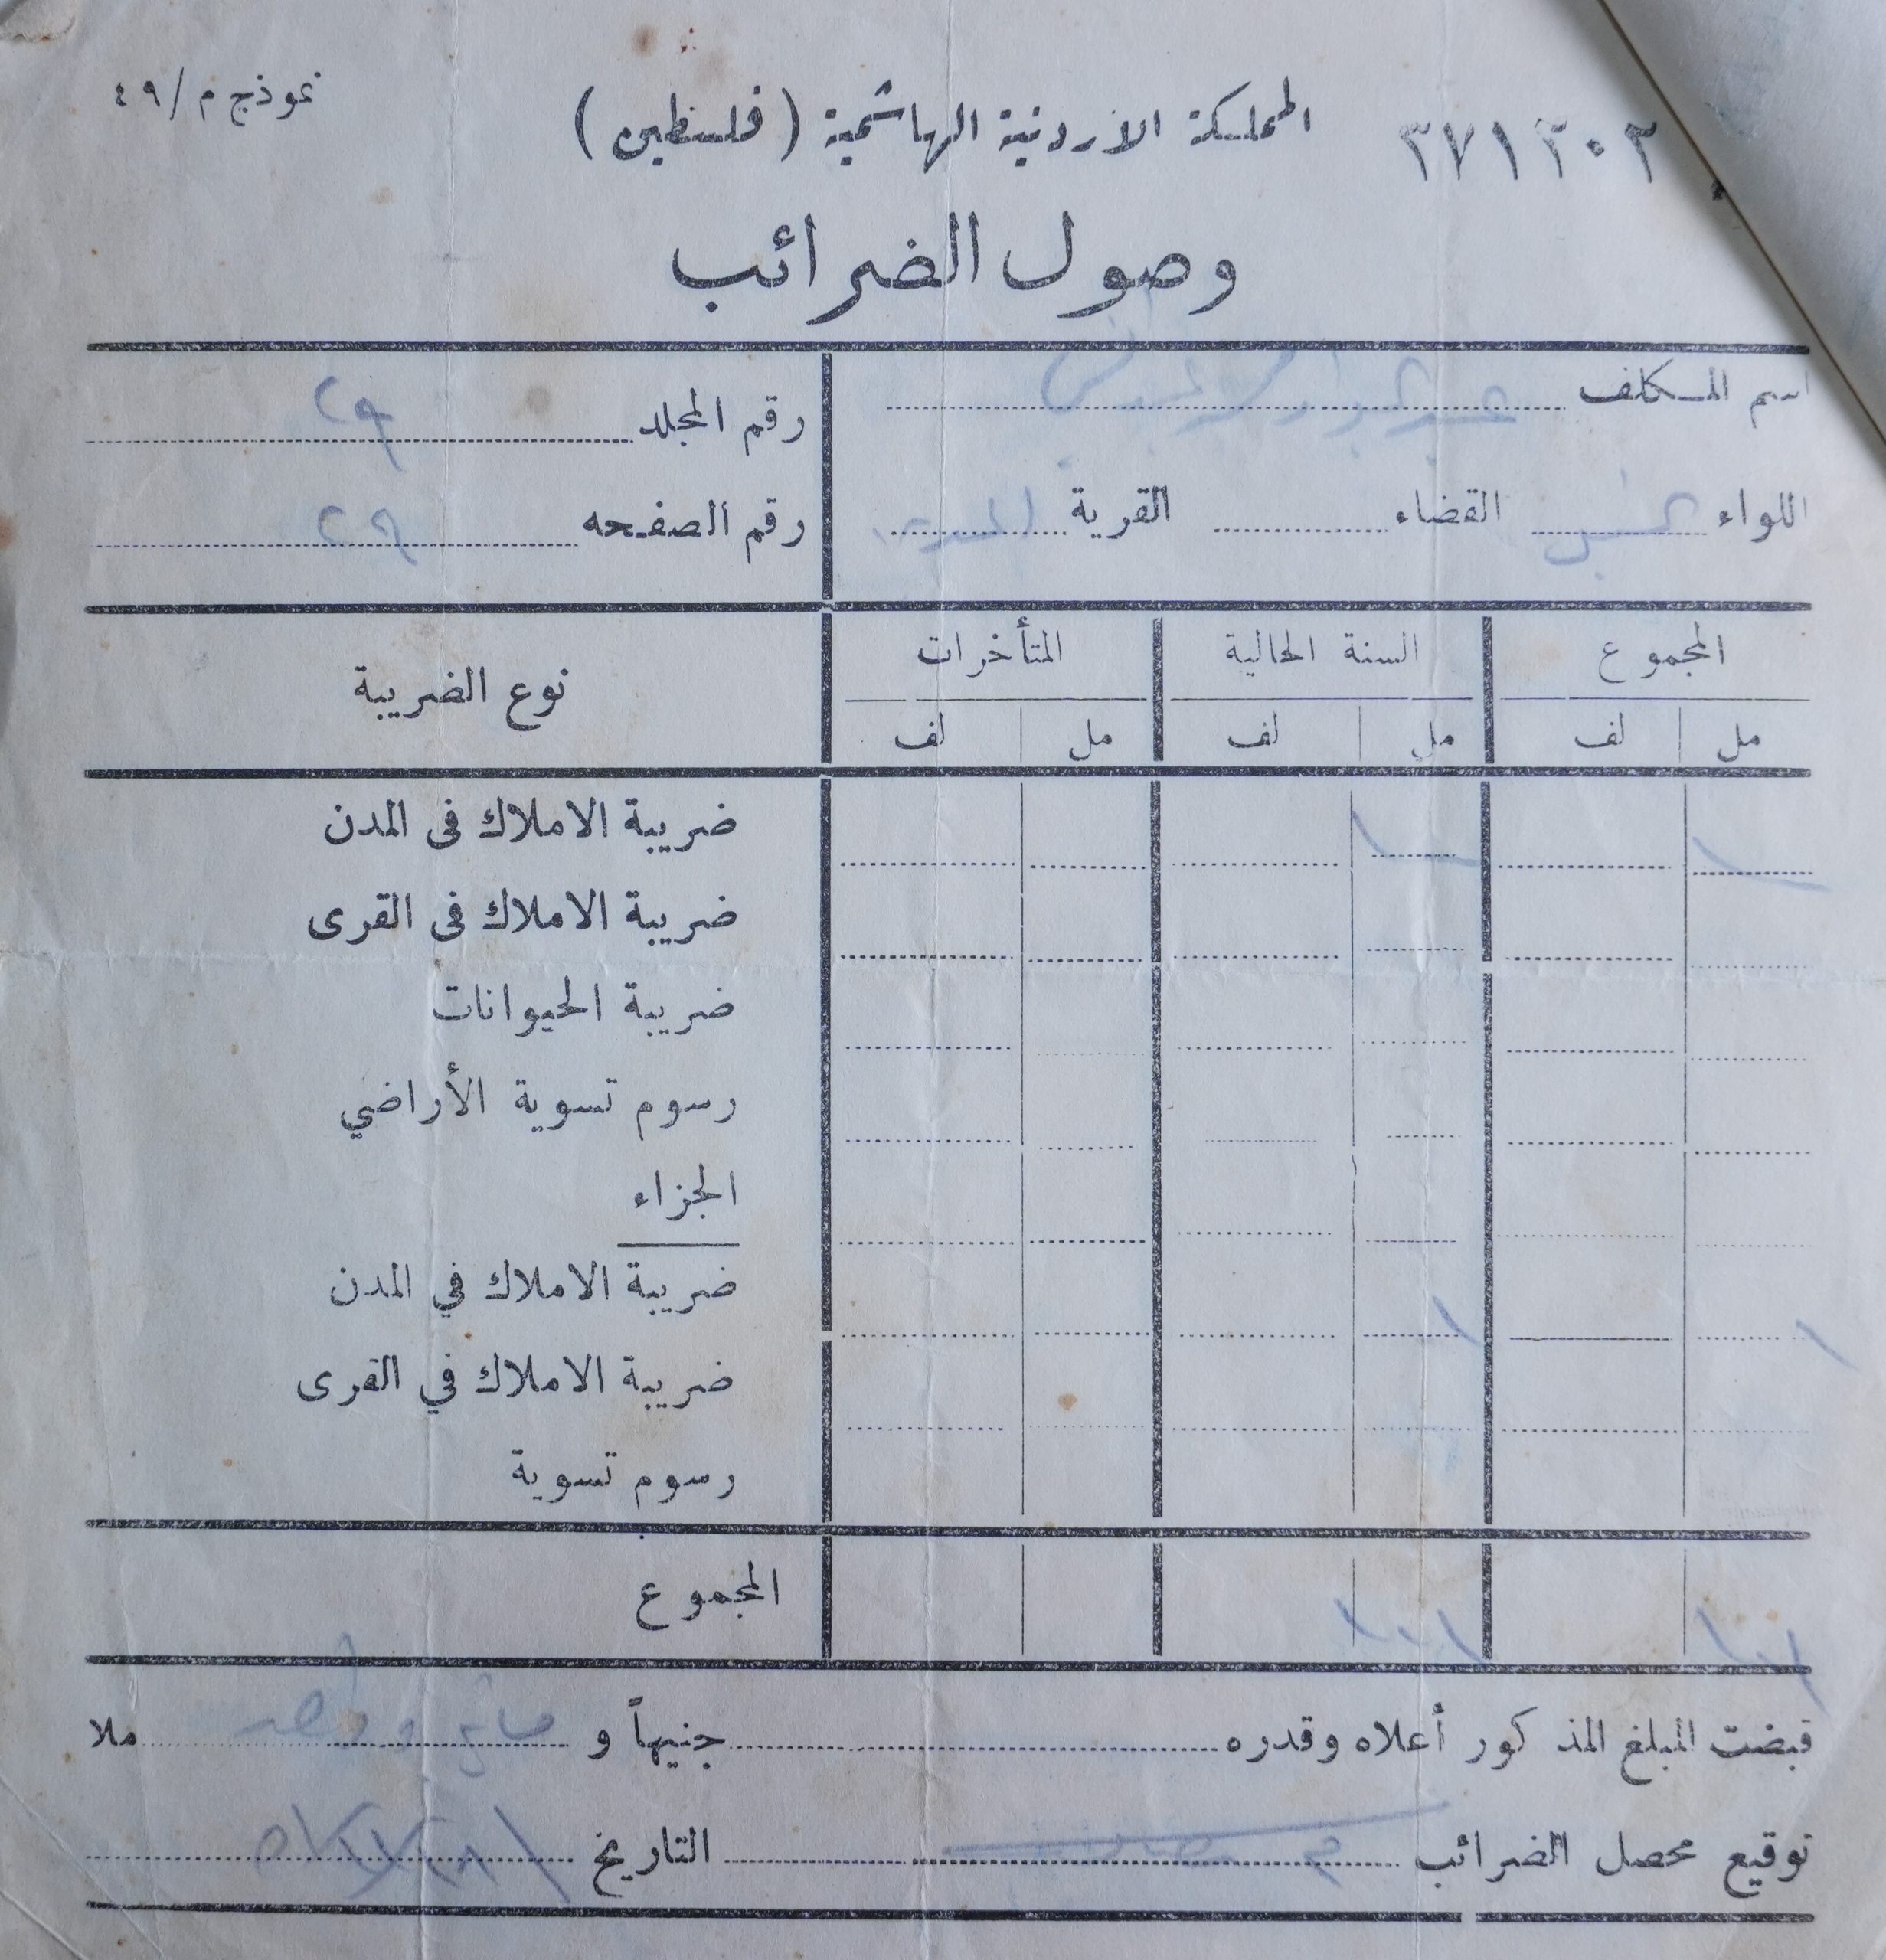 نموذج م/٤٩
المملكة الاردنية الهاشمية (فلسطين) ٣٧١٢٠٢
وصول الضرائب
اسم المكلف
رقم المجلد ٢٩
اللواء القضاء القرية
رقم الصفحه ٢٩
المجموع السنة الحالية المتأخرات نوع الضريبة
مل لف مل لف مل لف
ضريبة الاملاك في المدن
ضريبة الاملاك في القرى
ضريبة الحيوانات
رسوم تسوية الأراضي
الجزاء
ضريبة الاملاك في المدن ١ ١
ضريبة الاملاك في القرى
رسوم تسوية
المجموع ١٠١ ١٠١
قبضت المبلغ المذكور أعلاه وقدره جنيهاً و ملا
توقيع محصل الضرائب التاريخ